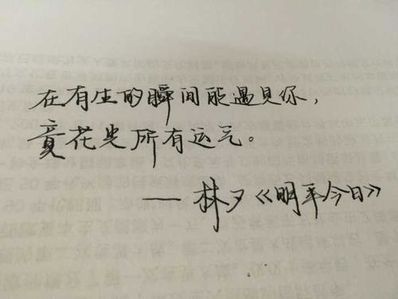 在有生的瞬间能遇见你，
竟花光所有运气。
—— 林夕《明年今日》